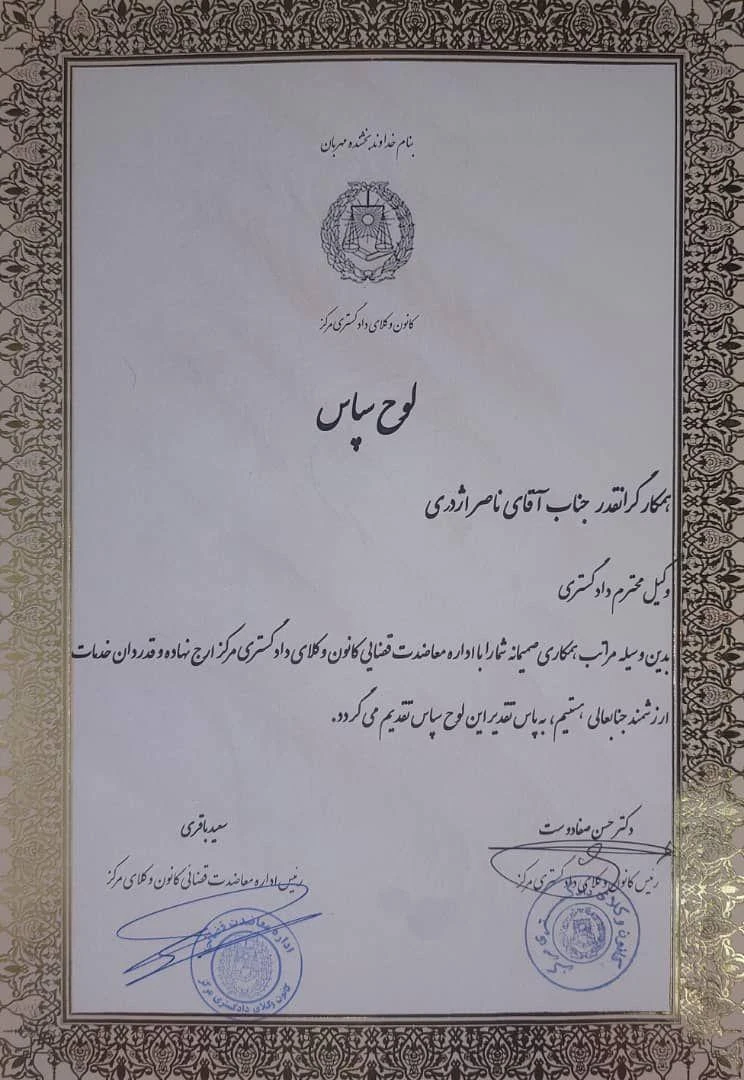 بنام خداوند بخشنده مهربان
کانون وکلای دادگستری مرکز
لوح سپاس
همکار گرانقدر جناب آقای ناصر اژدری
وکیل محترم دادگستری
بدین وسیله مراتب همکاری صمیمانه شما را با اداره معاضدت قضایی کانون وکلای دادگستری مرکز ارج نهاده و قدردان خدمات
ارزشمند جنابعالی هستیم، به پاس تقدیر این لوح سپاس تقدیم می گردد.
دکتر حسن صفادوست
رئیس کانون وکلای دادگستری مرکز
سعید باقری
رئیس اداره معاضدت قضائی کانون وکلای مرکز
کانون وکلای دادگستری
اداره معاضدت قضایی
کانون وکلای دادگستری مرکز